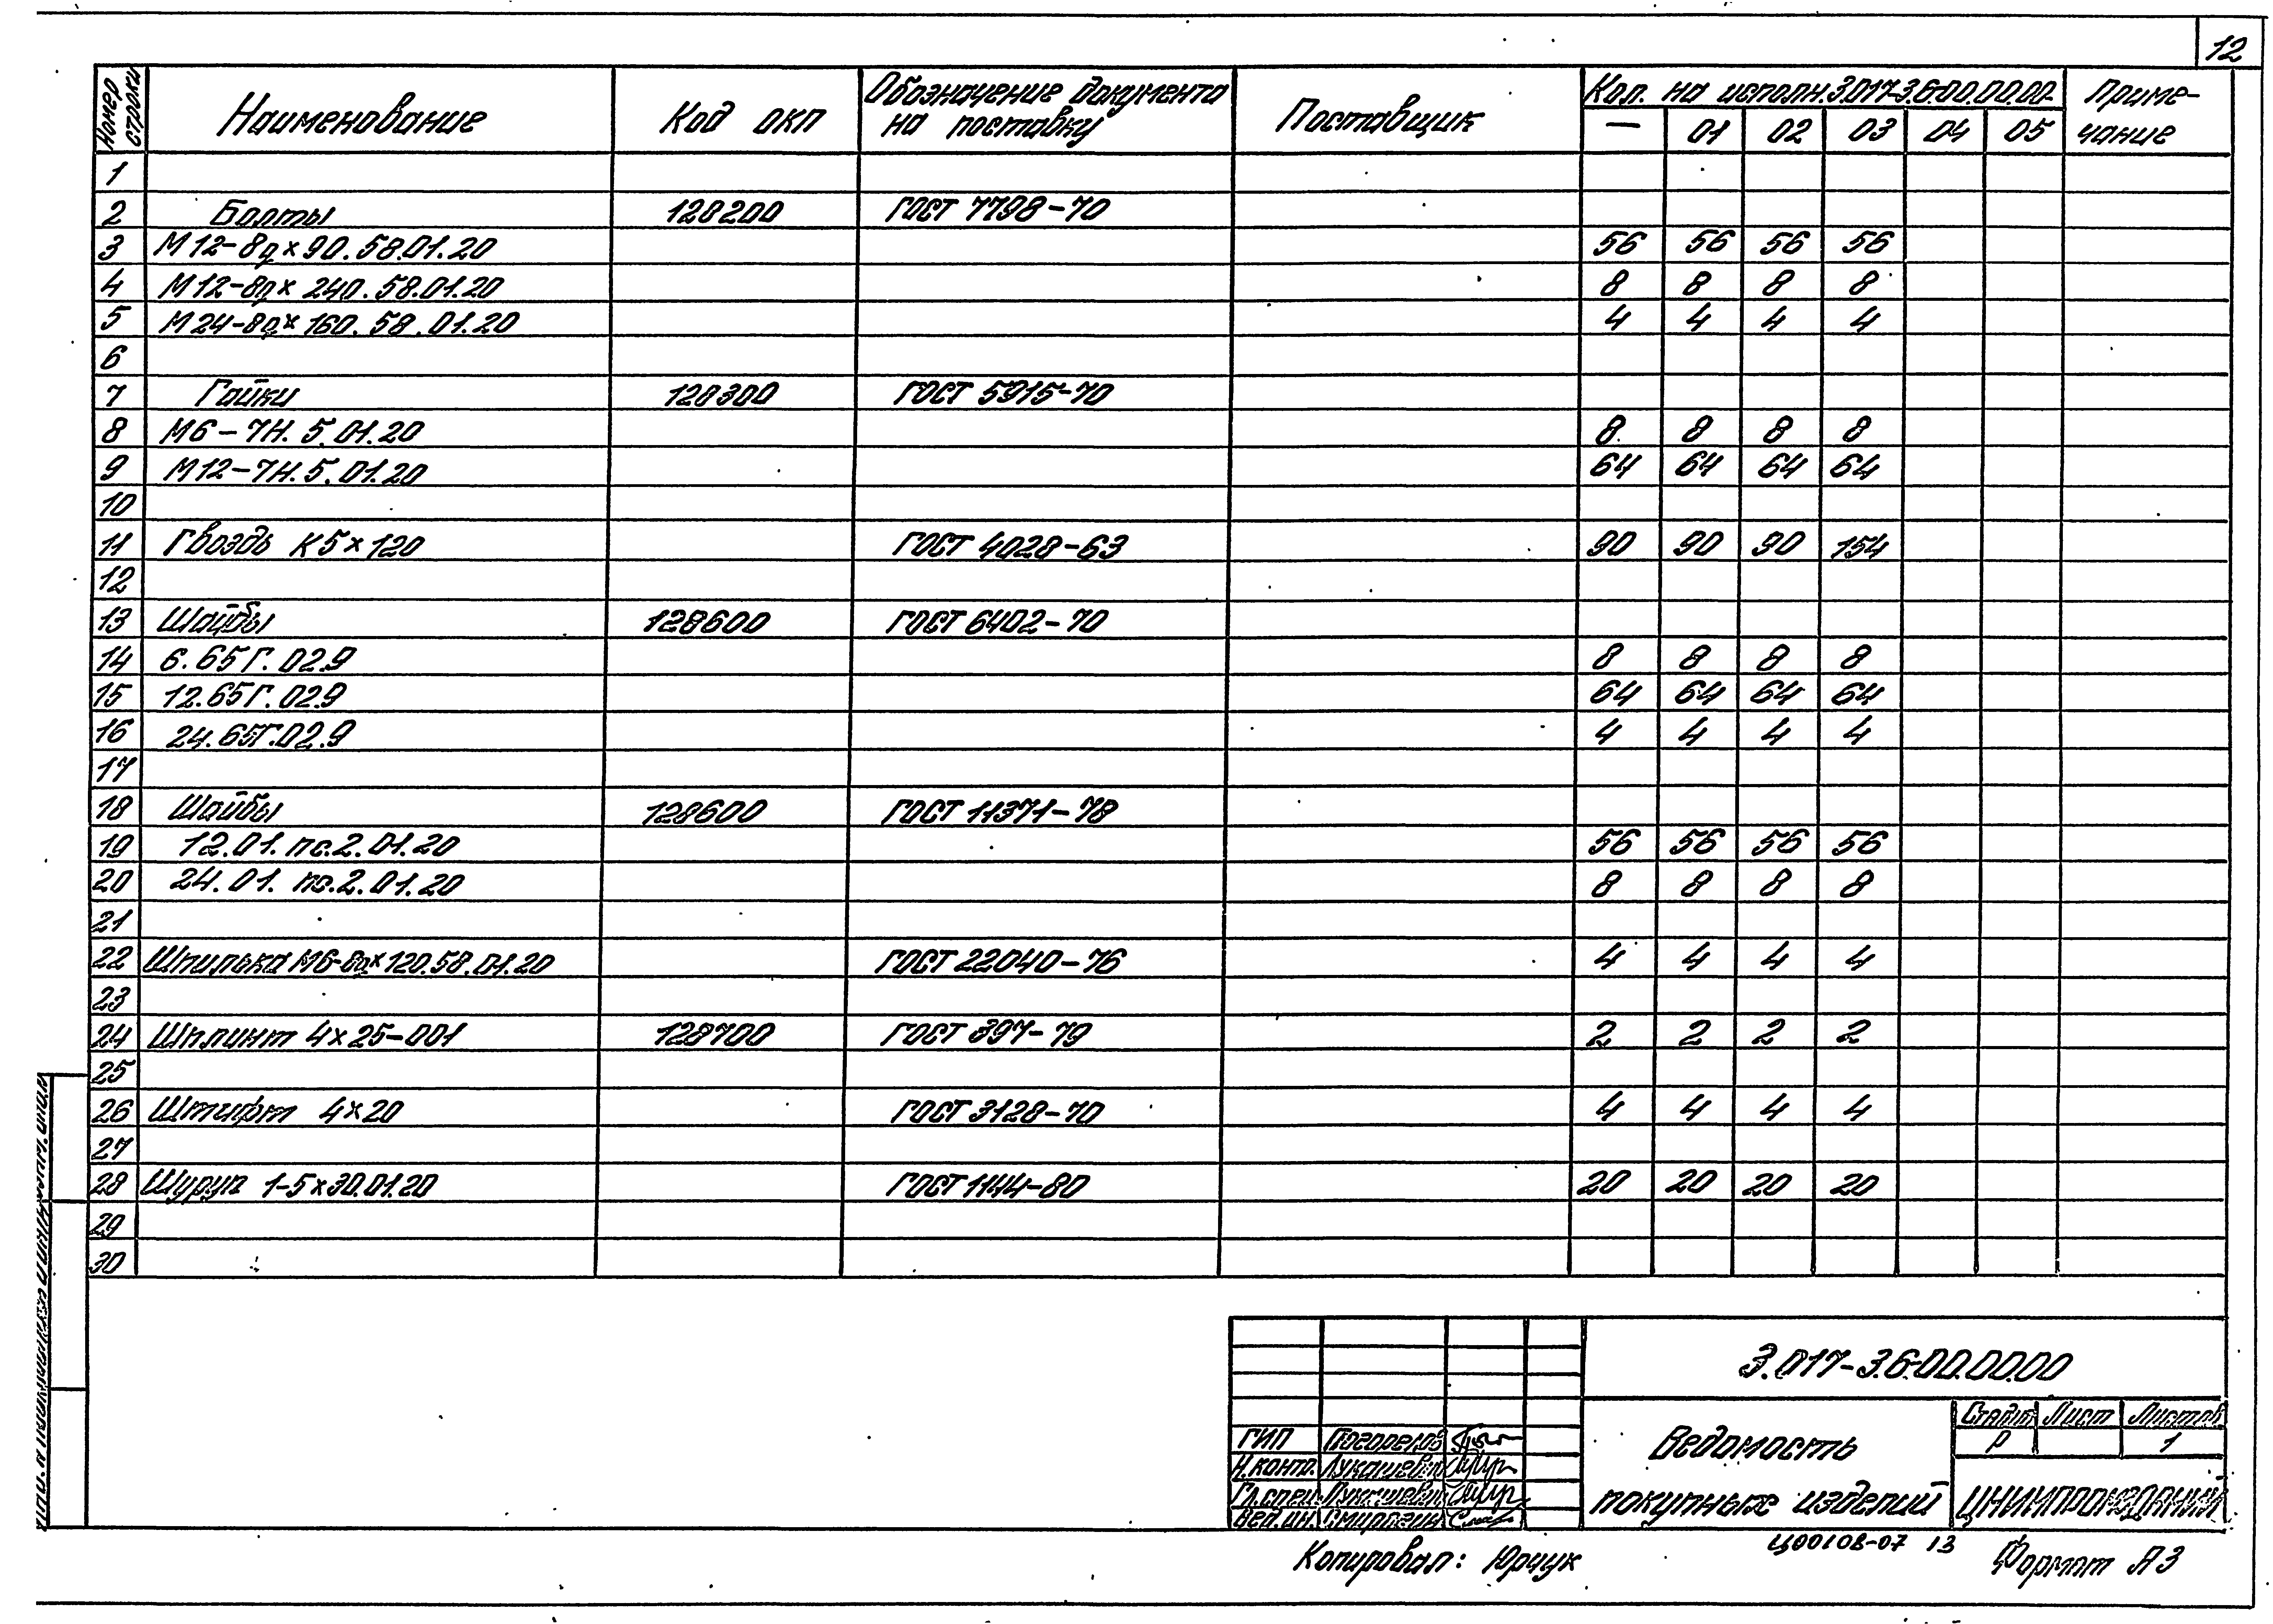 12
Номер строки Наименование Код ОКП Обозначение документа на поставку Поставщик Кол. на исполн. 3.017-3.6-00.00.00- Приме-чание
— 01 02 03 04 05
1
2 Болты 128200 ГОСТ 7798-70
3 М12-8g×90.58.01.20 56 56 56 56
4 М12-8g×240.58.01.20 8 8 8 8
5 М24-8g×160.58.01.20 4 4 4 4
6
7 Гайки 128300 ГОСТ 5915-70
8 М6-7Н.5.01.20 8 8 8 8
9 М12-7Н.5.01.20 64 64 64 64
10
11 Гвоздь К5×120 ГОСТ 4028-63 90 90 90 154
12
13 Шайбы 128600 ГОСТ 6402-70
14 6.65Г.02.9 8 8 8 8
15 12.65Г.02.9 64 64 64 64
16 24.65Г.02.9 4 4 4 4
17
18 Шайбы 128600 ГОСТ 11371-78
19 12.01.пс.2.01.20 56 56 56 56
20 24.01.пс.2.01.20 8 8 8 8
21
22 Шпилька М6-8g×120.58.01.20 ГОСТ 22040-76 4 4 4 4
23
24 Шплинт 4×25-001 128700 ГОСТ 397-79 2 2 2 2
25
26 Штифт 4×20 ГОСТ 3128-70 4 4 4 4
27
28 Шуруп 1-5×30.01.20 ГОСТ 1144-80 20 20 20 20
29
30
3.017-3.6-00.00.00
Стадия Лист Листов
Р 1
Ведомость
покупных изделий
ГИП Погорелов
Н.контр. Лукашевич
Гл.спец. Лукашевич
Вед.ин. Смирнов
ЦНИИпромзданий
Ц00108-07 13
Копировал: Юрчук
Формат А3